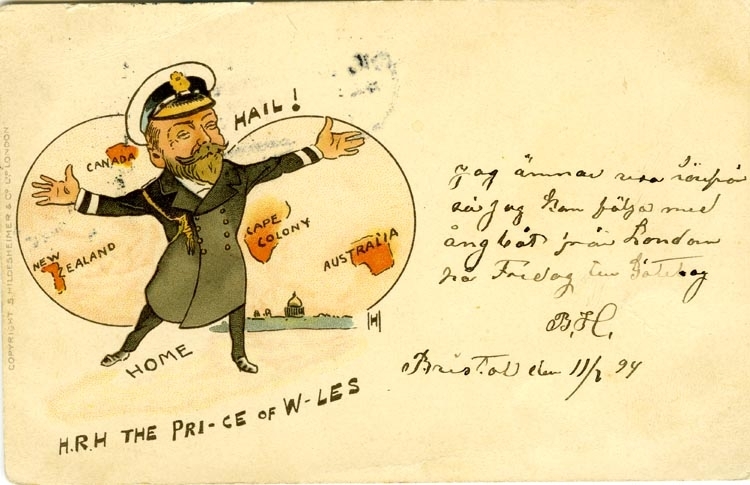 HAIL!
CANADA
NEW ZEALAND
CAPE COLONY
AUSTRALIA
HOME
H.R.H THE PRI-CE OF W-LES
COPYRIGHT S. HILDESHEIMER & Co LTD LONDON
Jag ämnar resa
så jag kan följa med
ångbåt från London
på Fredag
B.H.
Bristol den 11/7 94